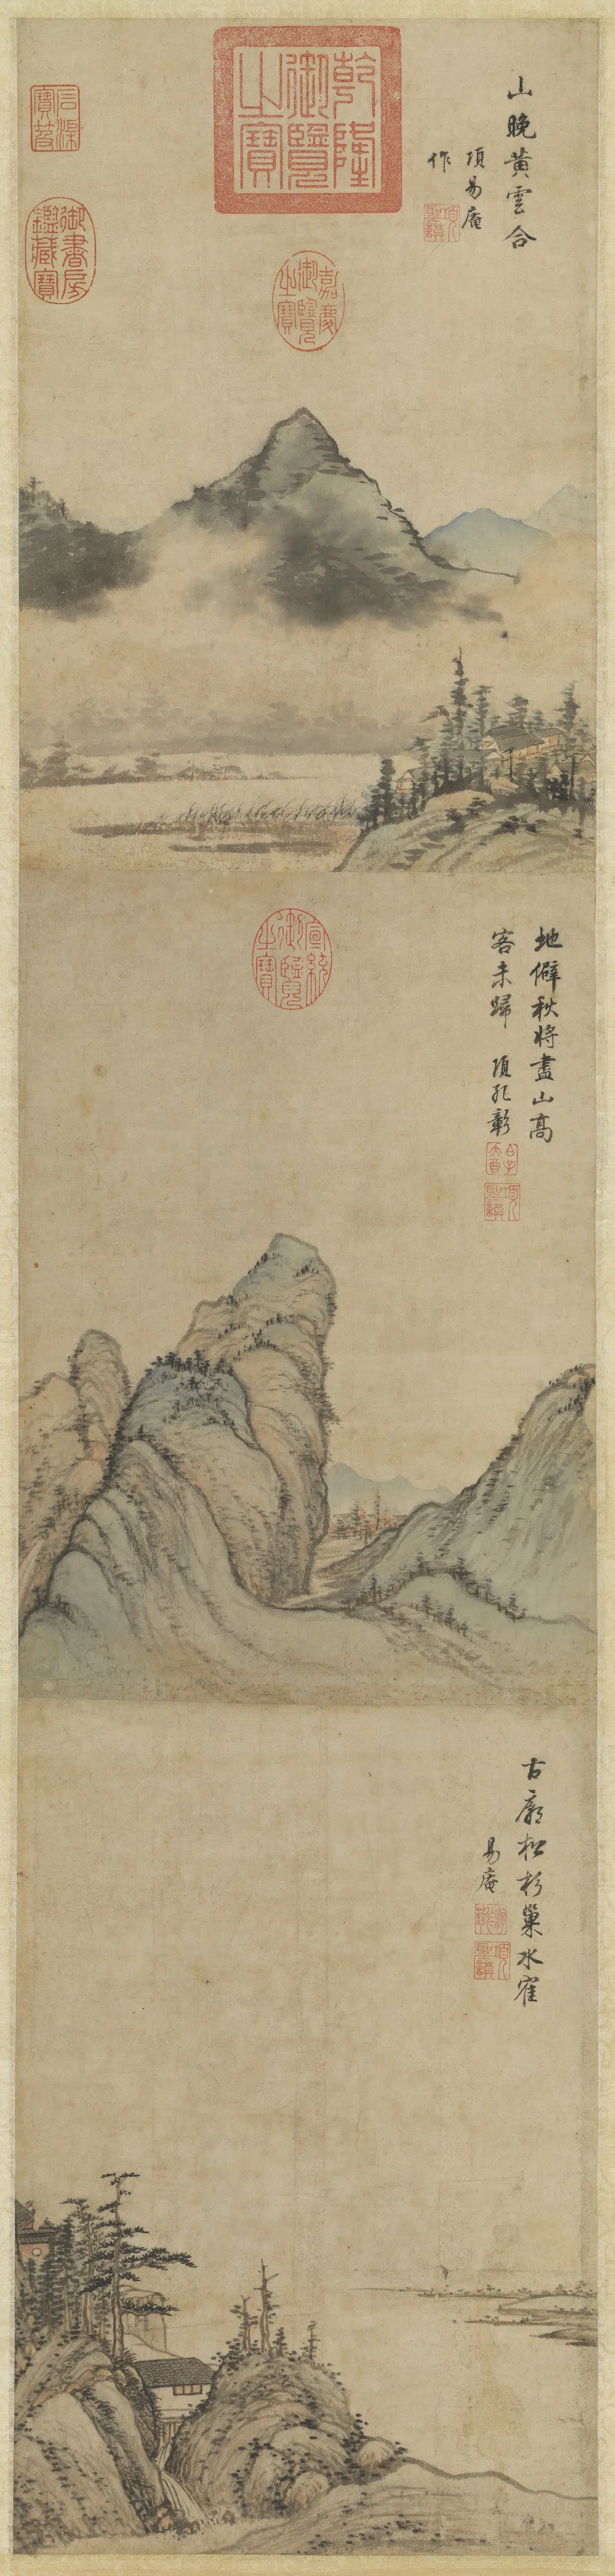 山晚黃雲合
項易庵
作
乾隆
御覽
之寶
石渠
寶笈
御書房
鑑藏寶
嘉慶
御覽
之寶
地僻秋將盡山高
客未歸 項孔彰
宣統
御覽
之寶
項
聖謨
古廟松杉巢水寉
易庵
項
聖謨